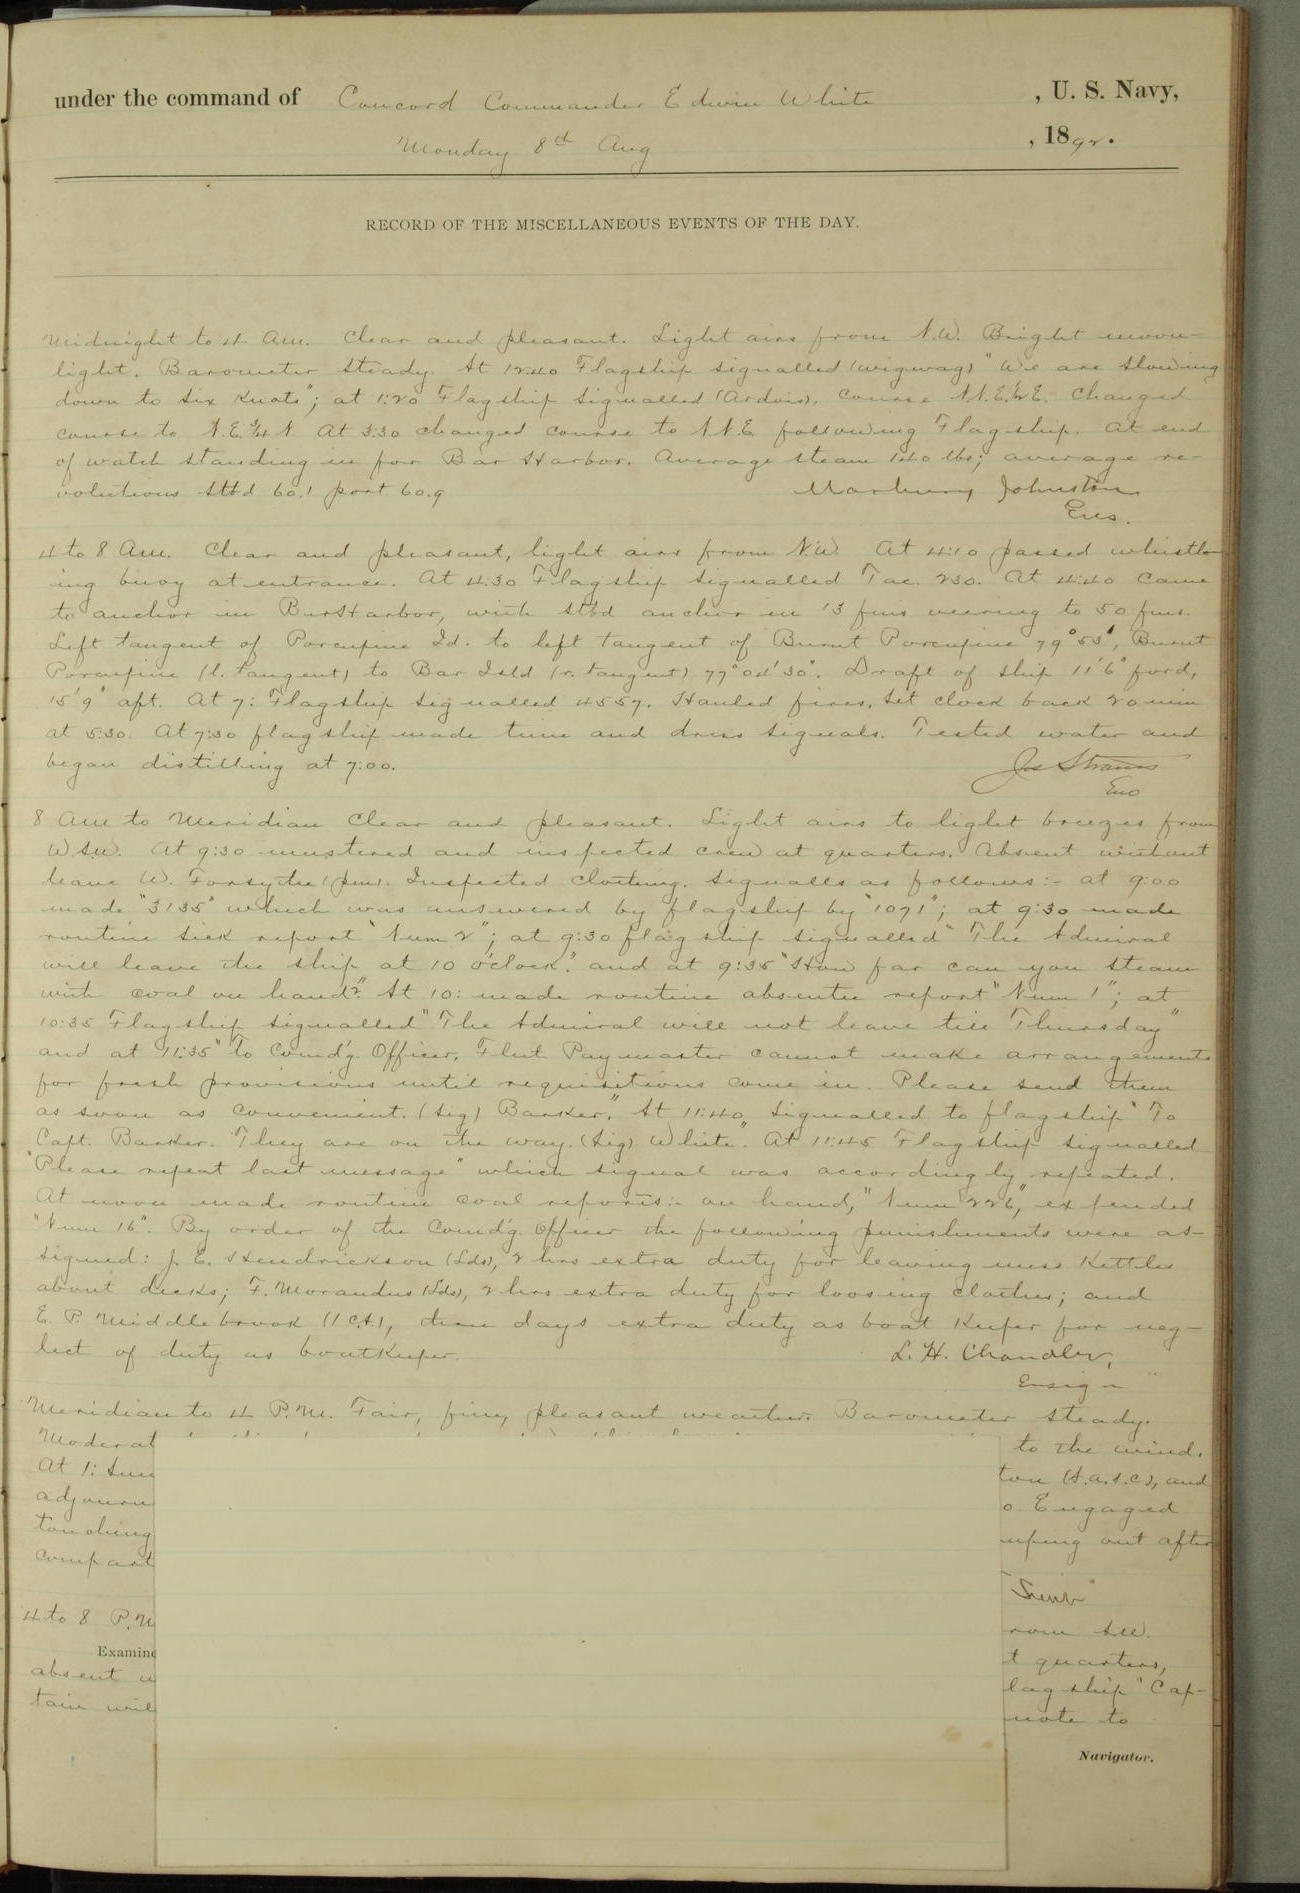 under the command of Concord Commander Edwin White , U. S. Navy,
Monday 8th Aug , 1892.
RECORD OF THE MISCELLANEOUS EVENTS OF THE DAY.
Midnight to 4 Am. Clear and pleasant. Light airs from N.W. Bright moon-
light. Barometer steady. At 12:40 Flagship signalled (wigwag) "We are slowing
down to six knots"; at 1:20 Flagship signalled (Ardois), course N.N.E.½E. Changed
course to N.E.¾N. At 3:30 changed course to N.N.E. following Flagship. At end
of watch standing in for Bar Harbor. Average steam 140 lbs; average re-
volutions stbd 60.1 port 60.9
Marbury Johnston
Ens.
4 to 8 Am. Clear and pleasant, light airs from N.W. At 4:10 passed whistl-
ing buoy at entrance. At 4:30 Flagship signalled Tac. 230. At 4:40 came
to anchor in Bar Harbor, with stbd anchor in 13 fms veering to 50 fms.
Left tangent of Porcupine Id. to left tangent of Burnt Porcupine 79°53', Burnt
Porcupine (l. tangent) to Bar Isld (r. tangent) 77°04'30". Draft of ship 11'6" ford,
15'9" aft. At 7: Flagship signalled 4557. Hauled fires. Set clock back 20 min
at 5:30. At 7:30 flagship made time and dress signals. Tested water and
began distilling at 7:00.
Jos Strauss
Ens
8 Am to Meridian Clear and pleasant. Light airs to light breezes from
W.S.W. At 9:30 mustered and inspected crew at quarters. Absent without
leave W. Forsythe (pm). Inspected clothing. Signalls as follows:- at 9:00
made "3135" which was answered by flagship by "1071"; at 9:30 made
routine sick report "Num 2"; at 9:30 flag ship signalled "The Admiral
will leave the ship at 10 o'clock." and at 9:35 "How far can you steam
with coal on hand?" At 10: made routine absentee report "Num 1"; at
10:35 Flagship signalled "The Admiral will not leave till Thursday"
and at 11:35 "To Comd'g. Officer, Fleet Paymaster cannot make arrangements
for fresh provisions until requisitions come in. Please send them
as soon as convenient. (Sig) Barker." At 11:40 signalled to flagship "To
Capt. Barker. They are on the way. (Sig) White". At 11:45 Flagship signalled
"Please repeat last message" which signal was accordingly repeated.
At noon made routine coal reports:- on hand, "Num 226", expended
"Num 16". By order of the Comd'g. Officer the following punishments were as-
signed: J. E. Hendrickson (Lds), 2 hrs extra duty for leaving mess kettles
about decks; F. Morandus (Lds), 2 hrs extra duty for loosing clothes; and
E. P. Middlebrook (1 c.A), three days extra duty as boat keeper for neg-
lect of duty as boatkeeper.
L. H. Chandler,
Ensign
Meridian to 4 P.M. Fair, fine, pleasant weather. Barometer steady.
Moderat to the wind.
At 1: Sum ton (S.a.s.c.), and
adjourn o. Engaged
touching mping out after
compart
4 to 8 P.M rom S.W.
Examine t quarters,
absent w lag ship "Cap-
tain will note to
Navigator.